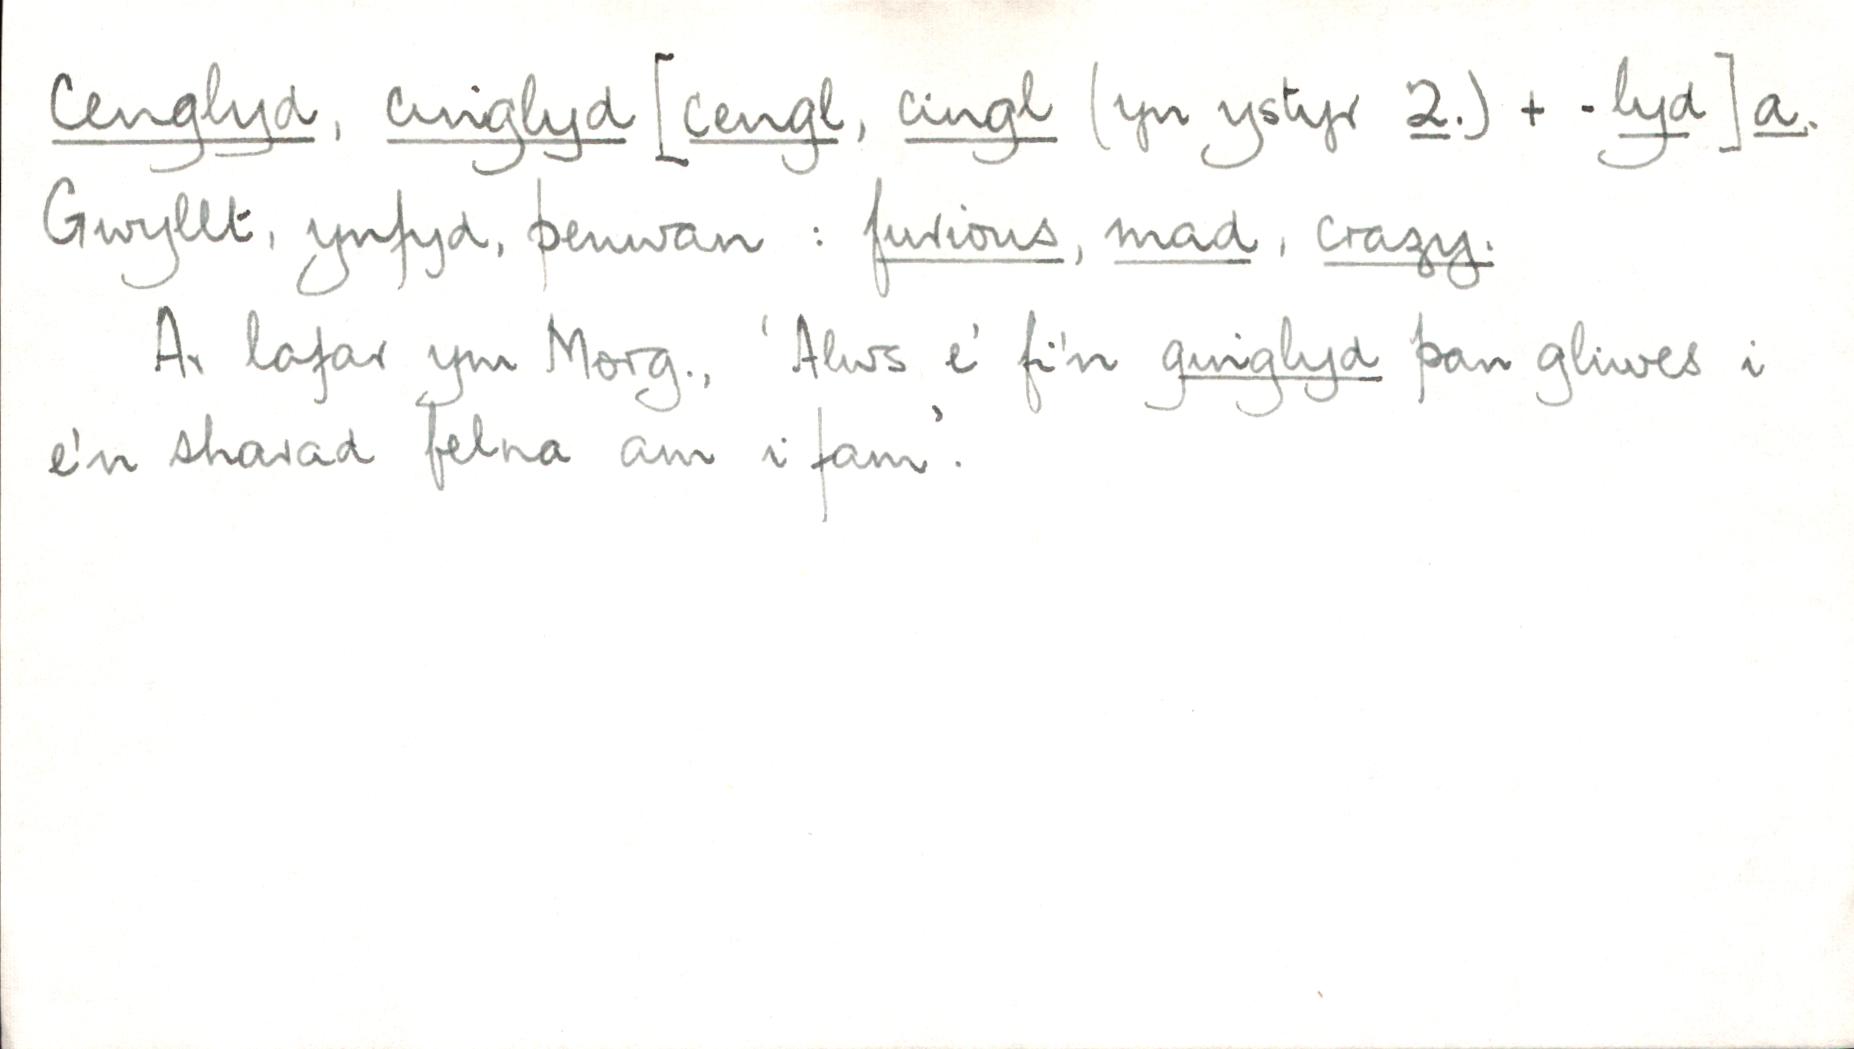 Cenglyd, cinglyd [cengl, cingl (yn ystyr 2.) + -lyd] a.
Gwyllt, ynfyd, penwan : furious, mad, crazy.
Ar lafar ym Morg., 'Alws e' fi'n ginglyd pan gliwes i
e'n sharad felna am i fam'.